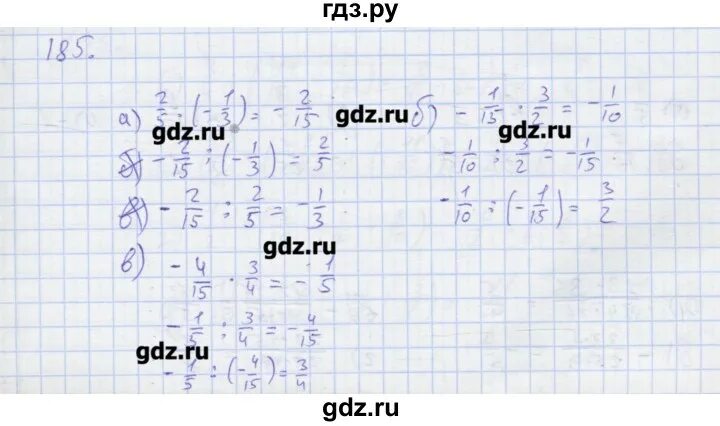 гдз.ру
185.
а) 2/5 · (-1/3) = -2/15
gdz.ru
gdz.ru
б) -1/15 · 3/2 = -1/10
gdz.ru
-2/15 : (-1/3) = 2/5
-1/10 : 3/2 = -1/15
-2/15 : 2/5 = -1/3
-1/10 : (-1/15) = 3/2
gdz.ru
в) -4/15 · 3/4 = -1/5
-1/5 : 3/4 = -4/15
gdz.ru
-1/5 : (-4/15) = 3/4
gdz.ru